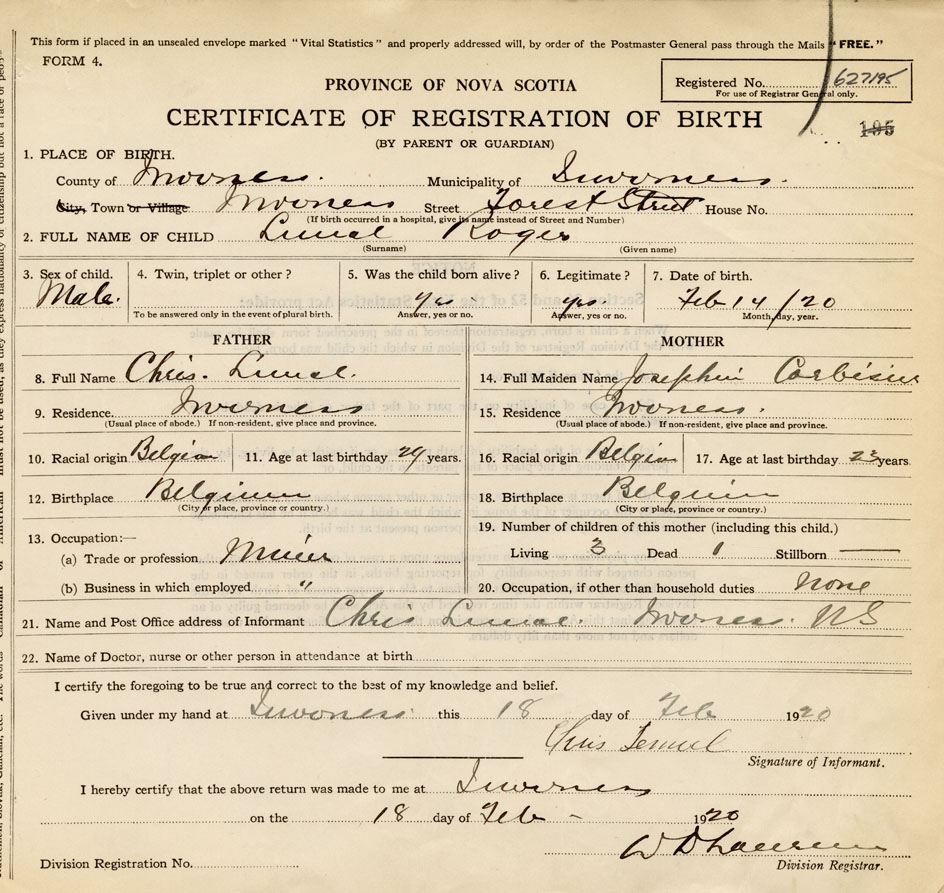 This form if placed in an unsealed envelope marked "Vital Statistics" and properly addressed will, by order of the Postmaster General pass through the Mails "FREE."
FORM 4.
Registered No. 627195
For use of Registrar General only.
PROVINCE OF NOVA SCOTIA
CERTIFICATE OF REGISTRATION OF BIRTH
195
(BY PARENT OR GUARDIAN)
1. PLACE OF BIRTH.
County of Inverness. Municipality of Inverness.
City, Town or Village Inverness Street Forest Street House No.
(If birth occurred in a hospital, give its name instead of Street and Number)
2. FULL NAME OF CHILD Roger
(Surname) (Given name)
3. Sex of child. 4. Twin, triplet or other? 5. Was the child born alive? 6. Legitimate? 7. Date of birth.
Male. yes yes Feb 14/20
To be answered only in the event of plural birth. Answer, yes or no. Answer, yes or no. Month, day, year.
FATHER MOTHER
8. Full Name Chris. 14. Full Maiden Name
9. Residence. Inverness 15. Residence Inverness.
(Usual place of abode.) If non-resident, give place and province. (Usual place of abode.) If non-resident, give place and province.
10. Racial origin Belgian 11. Age at last birthday 29 years. 16. Racial origin Belgian 17. Age at last birthday 23 years.
12. Birthplace Belgium 18. Birthplace Belgium
(City or place, province or country.) (City or place, province or country.)
13. Occupation:— 19. Number of children of this mother (including this child.)
(a) Trade or profession Miner Living 3 Dead 1 Stillborn —
(b) Business in which employed " 20. Occupation, if other than household duties none
21. Name and Post Office address of Informant Chris Inverness. NS
22. Name of Doctor, nurse or other person in attendance at birth
I certify the foregoing to be true and correct to the best of my knowledge and belief.
Given under my hand at Inverness this 18 day of Feb 1920
Chris
Signature of Informant.
I hereby certify that the above return was made to me at Inverness
on the 18 day of Feb - 1920
W D
Division Registration No. Division Registrar.